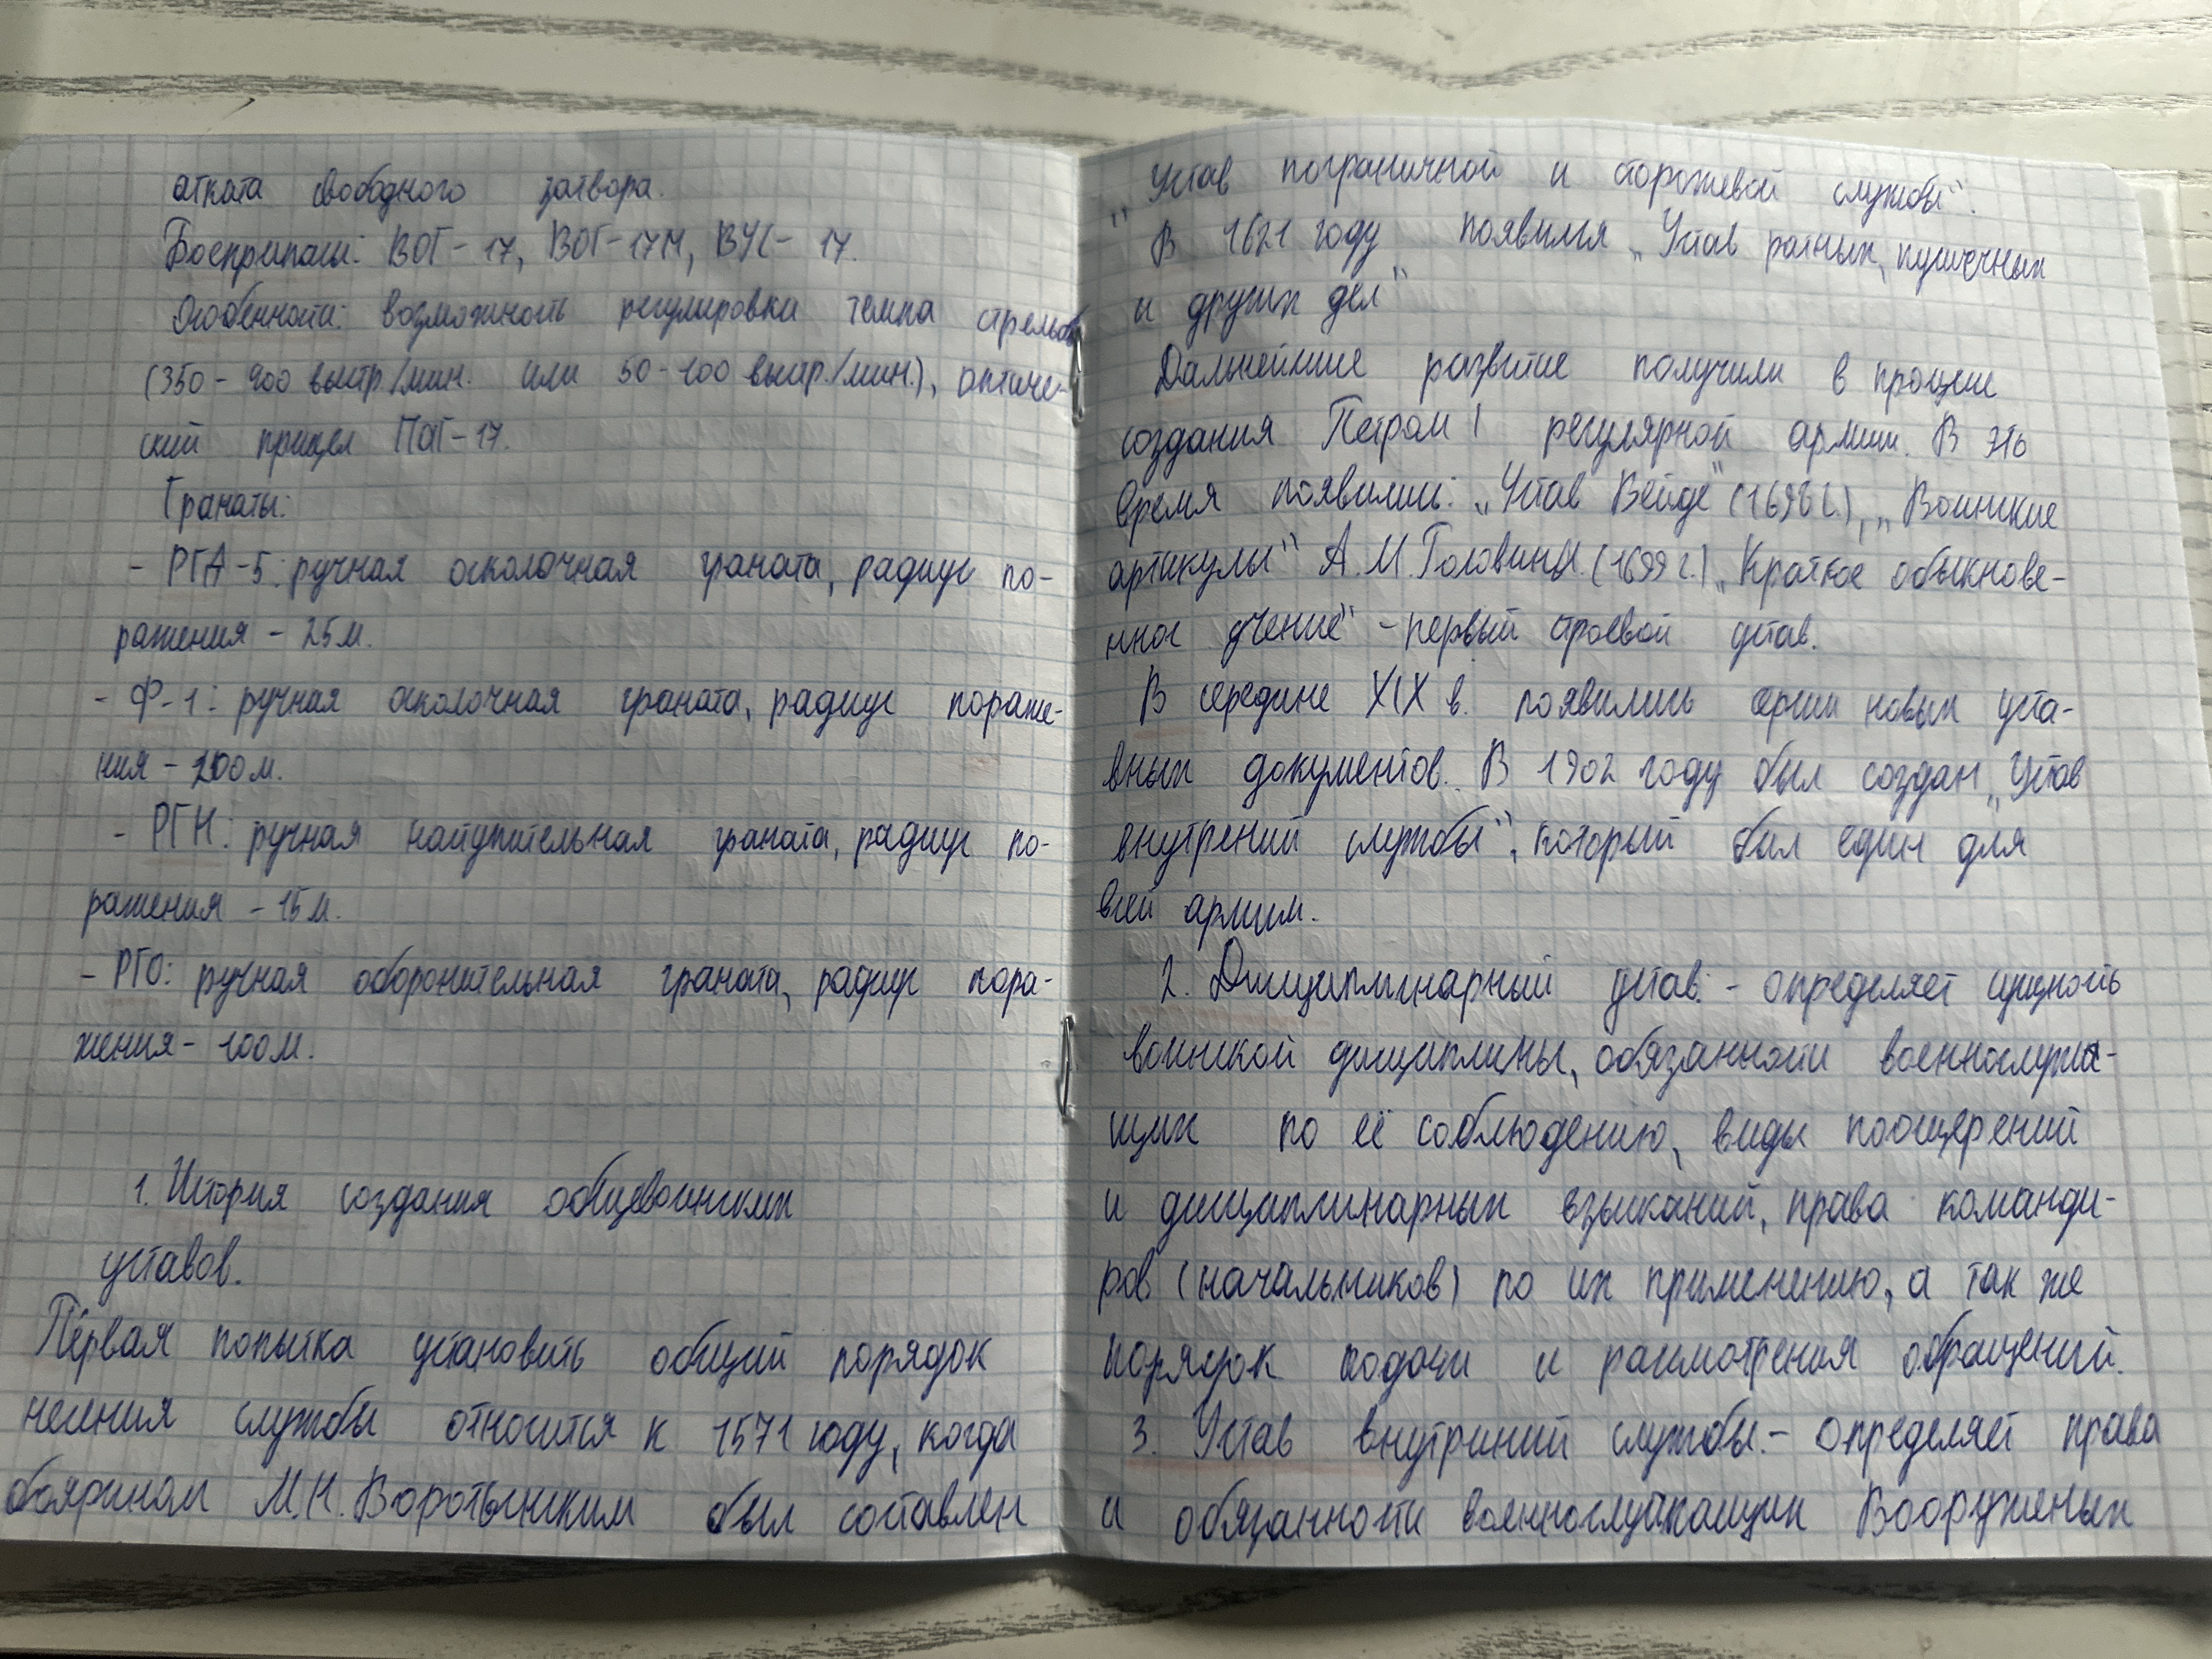 отката свободного затвора.
Боеприпасы: ВОГ-17, ВОГ-17М, ВУС-17.
Особенности: возможность регулировки темпа стрельбы
(350-400 выстр./мин. или 50-100 выстр./мин.), оптиче-
ский прицел ПАГ-17.
Гранаты:
- РГД-5: ручная осколочная граната, радиус по-
ражения - 25м.
- Ф-1: ручная осколочная граната, радиус пораже-
ния - 200м.
- РГН: ручная наступительная граната, радиус по-
ражения - 15м.
- РГО: ручная оборонительная граната, радиус пора-
жения - 100м.
1. История создания общевоинских
уставов.
Первая попытка установить общий порядок
несения службы относится к 1571 году, когда
боярином М.Н. Воротынским был составлен
„Устав пограничной и сторожевой службы".
В 1621 году появился „Устав ратных, пушечных
и других дел"
Дальнейшие развитие получили в процессе
создания Петром I регулярной армии. В это
время появились: „Устав Вейде" (1698 г.), „Воинские
артикулы" А.М. Головина. (1699 г.) „Краткое обыкнове-
нное учение" - первый строевой устав.
В середине XIX в. появились серии новых уста-
вных документов. В 1902 году был создан „Устав
внутрений службы", который был един для
всей армии.
2. Дисциплинарный устав: - определяет сущность
воинской дисциплины, обязанности военнослужа-
щих по её соблюдению, виды поощерений
и дисциплинарных взысканий, права команди-
ров (начальников) по их применению, а так же
порядок подачи и рассмотрения обращений.
3. Устав внутриний службы. - определяет права
и обязанности военнослужащих Вооруженых